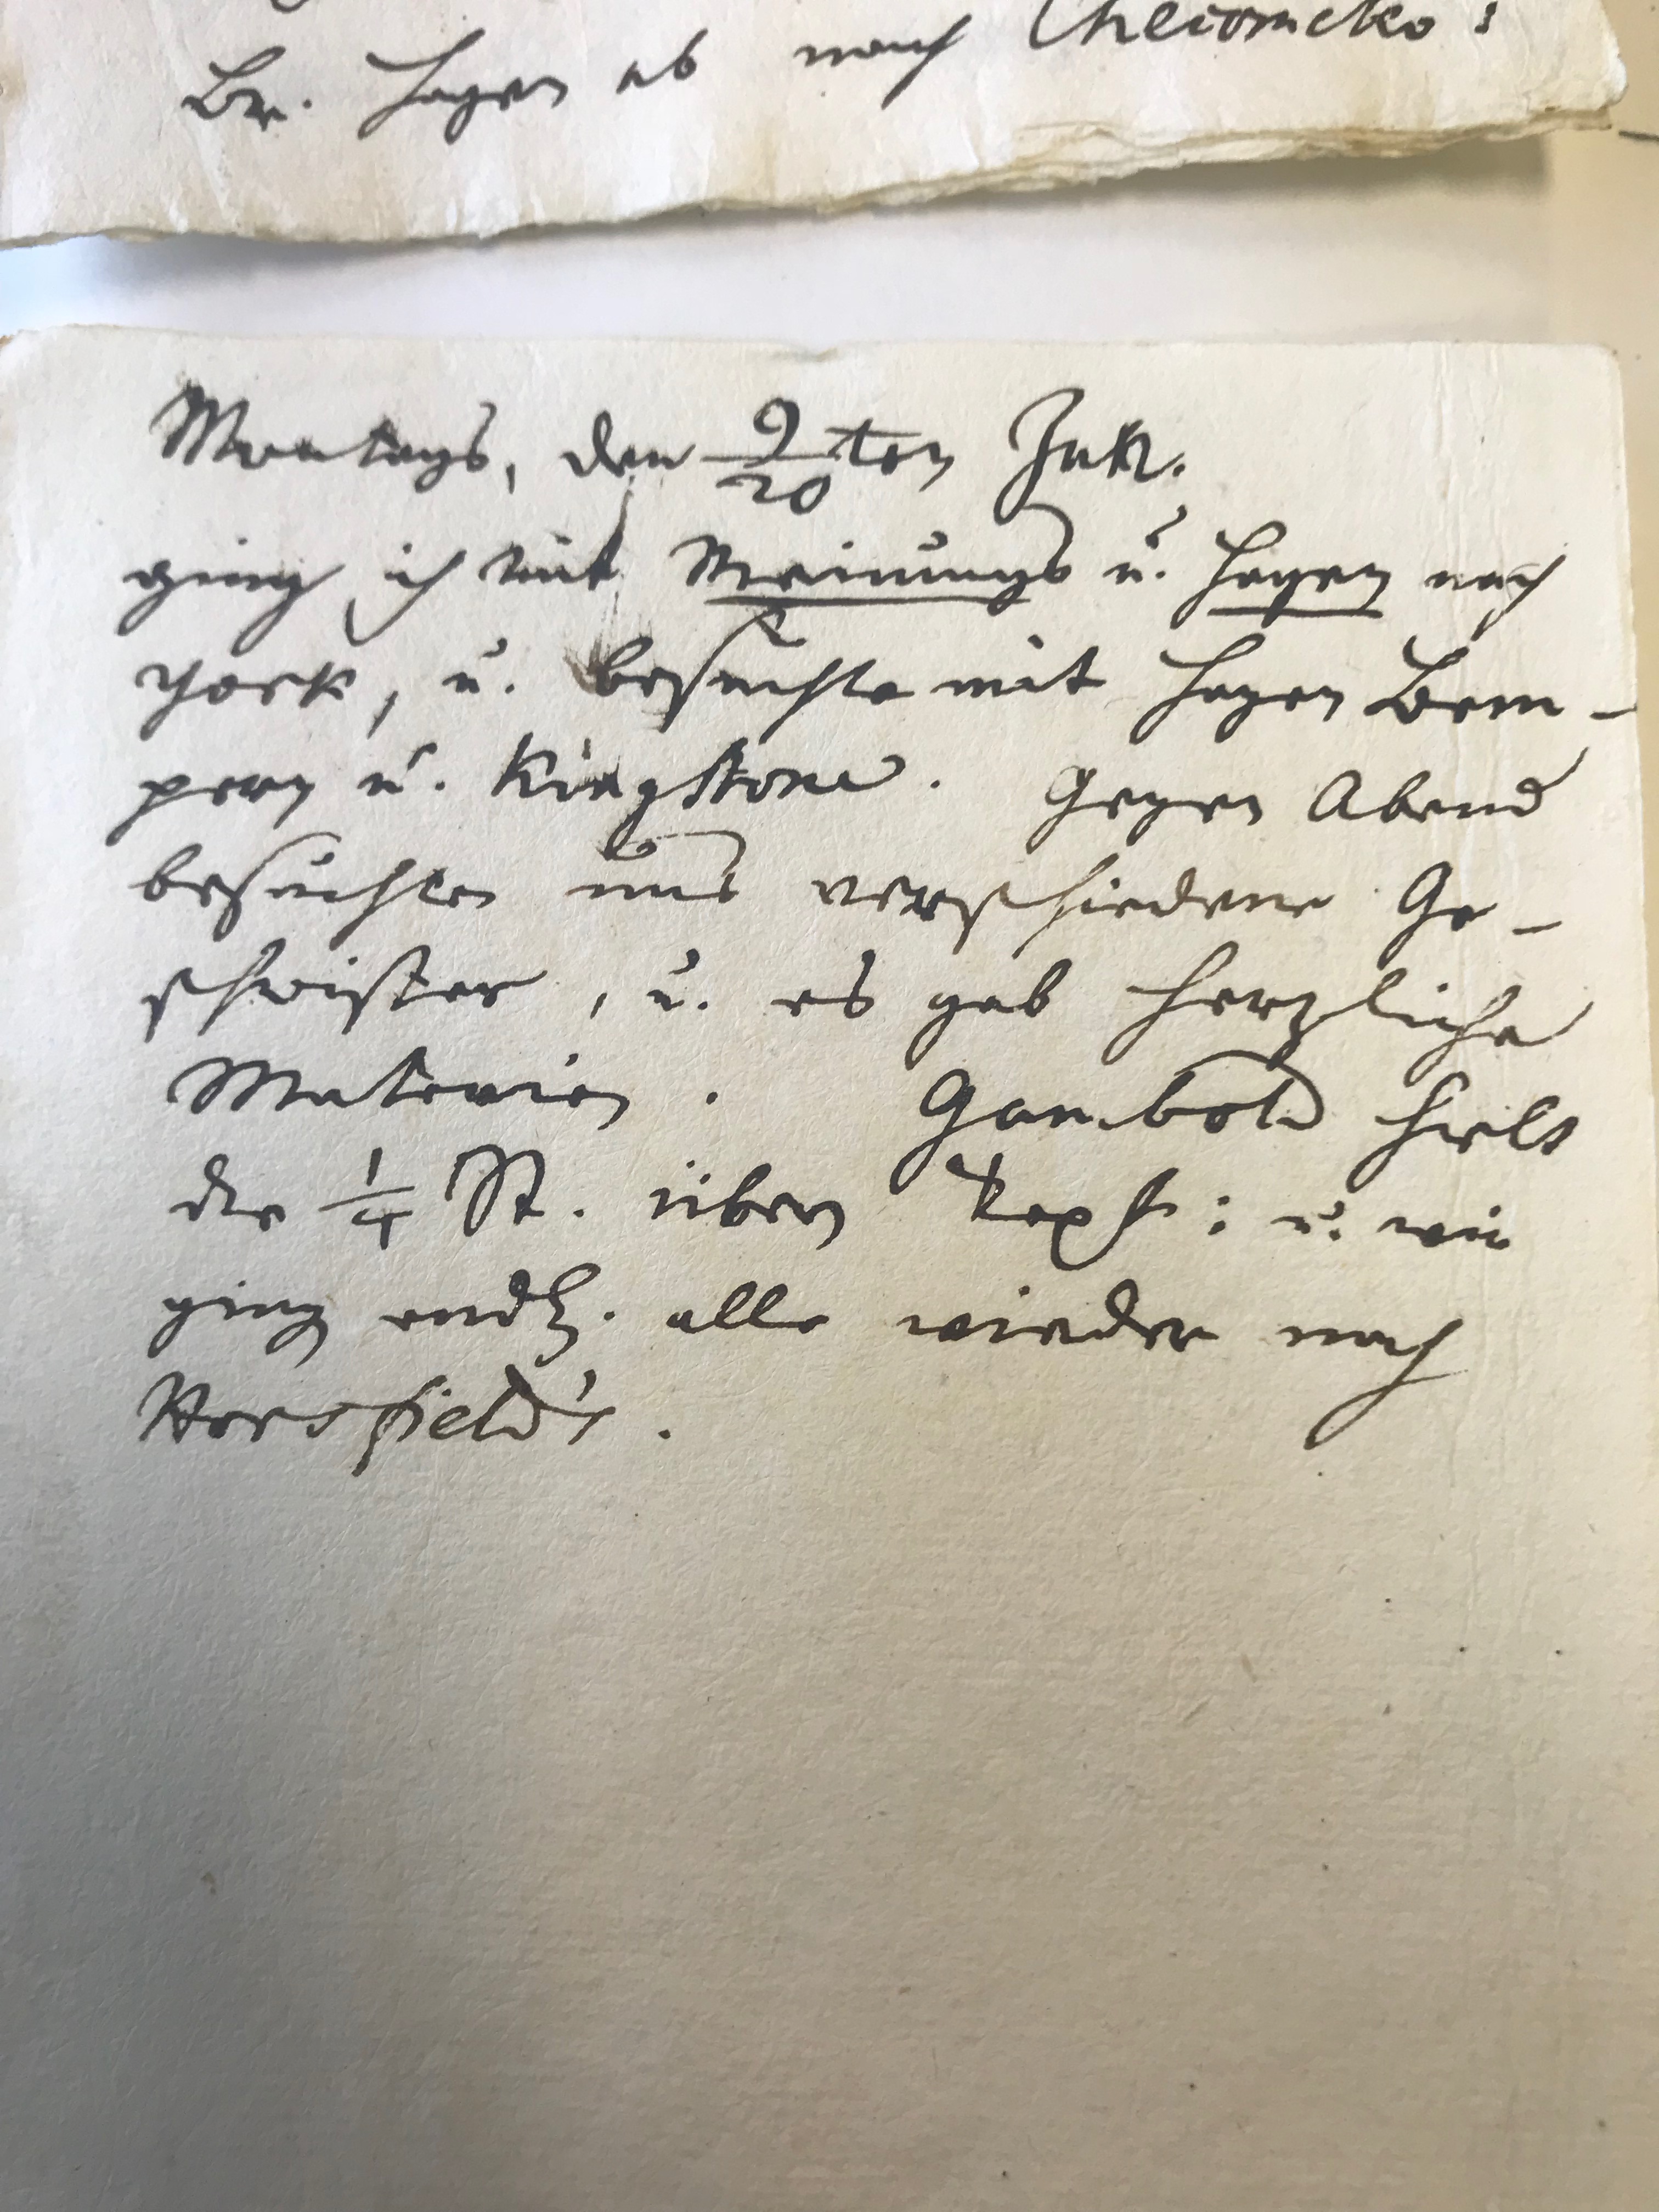 Br. Hagen ab nach Checomeko:
Montags, den 9/20ten Jan.
ging ich mit Meinungs u. Hagen nach
York, u. besuchte mit Hagen Bem-
pern u. Kingstone. Gegen Abend
besuchten uns verschiedene Ge-
schwister, u. es gab hertzliche
Materien. Gambold hielt
die 1/4 St. übern Text: u. wir
ging endl. alle wieder nach
Horsfield's.